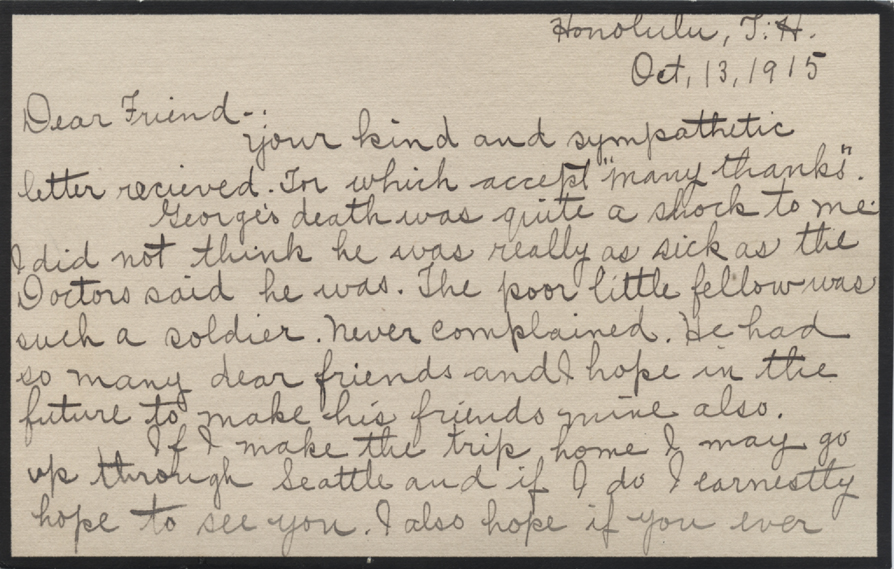 Honolulu, T.H.
Oct, 13, 1915
Dear Friend-:
your kind and sympathetic
letter recieved. For which accept "many thanks".
George's death was quite a shock to me.
I did not think he was really as sick as the
Doctors said he was. The poor little fellow was
such a soldier. Never complained. He had
so many dear friends and I hope in the
future to make his friends mine also.
If I make the trip home I may go
up through Seattle and if I do I earnestly
hope to see you. I also hope if you ever